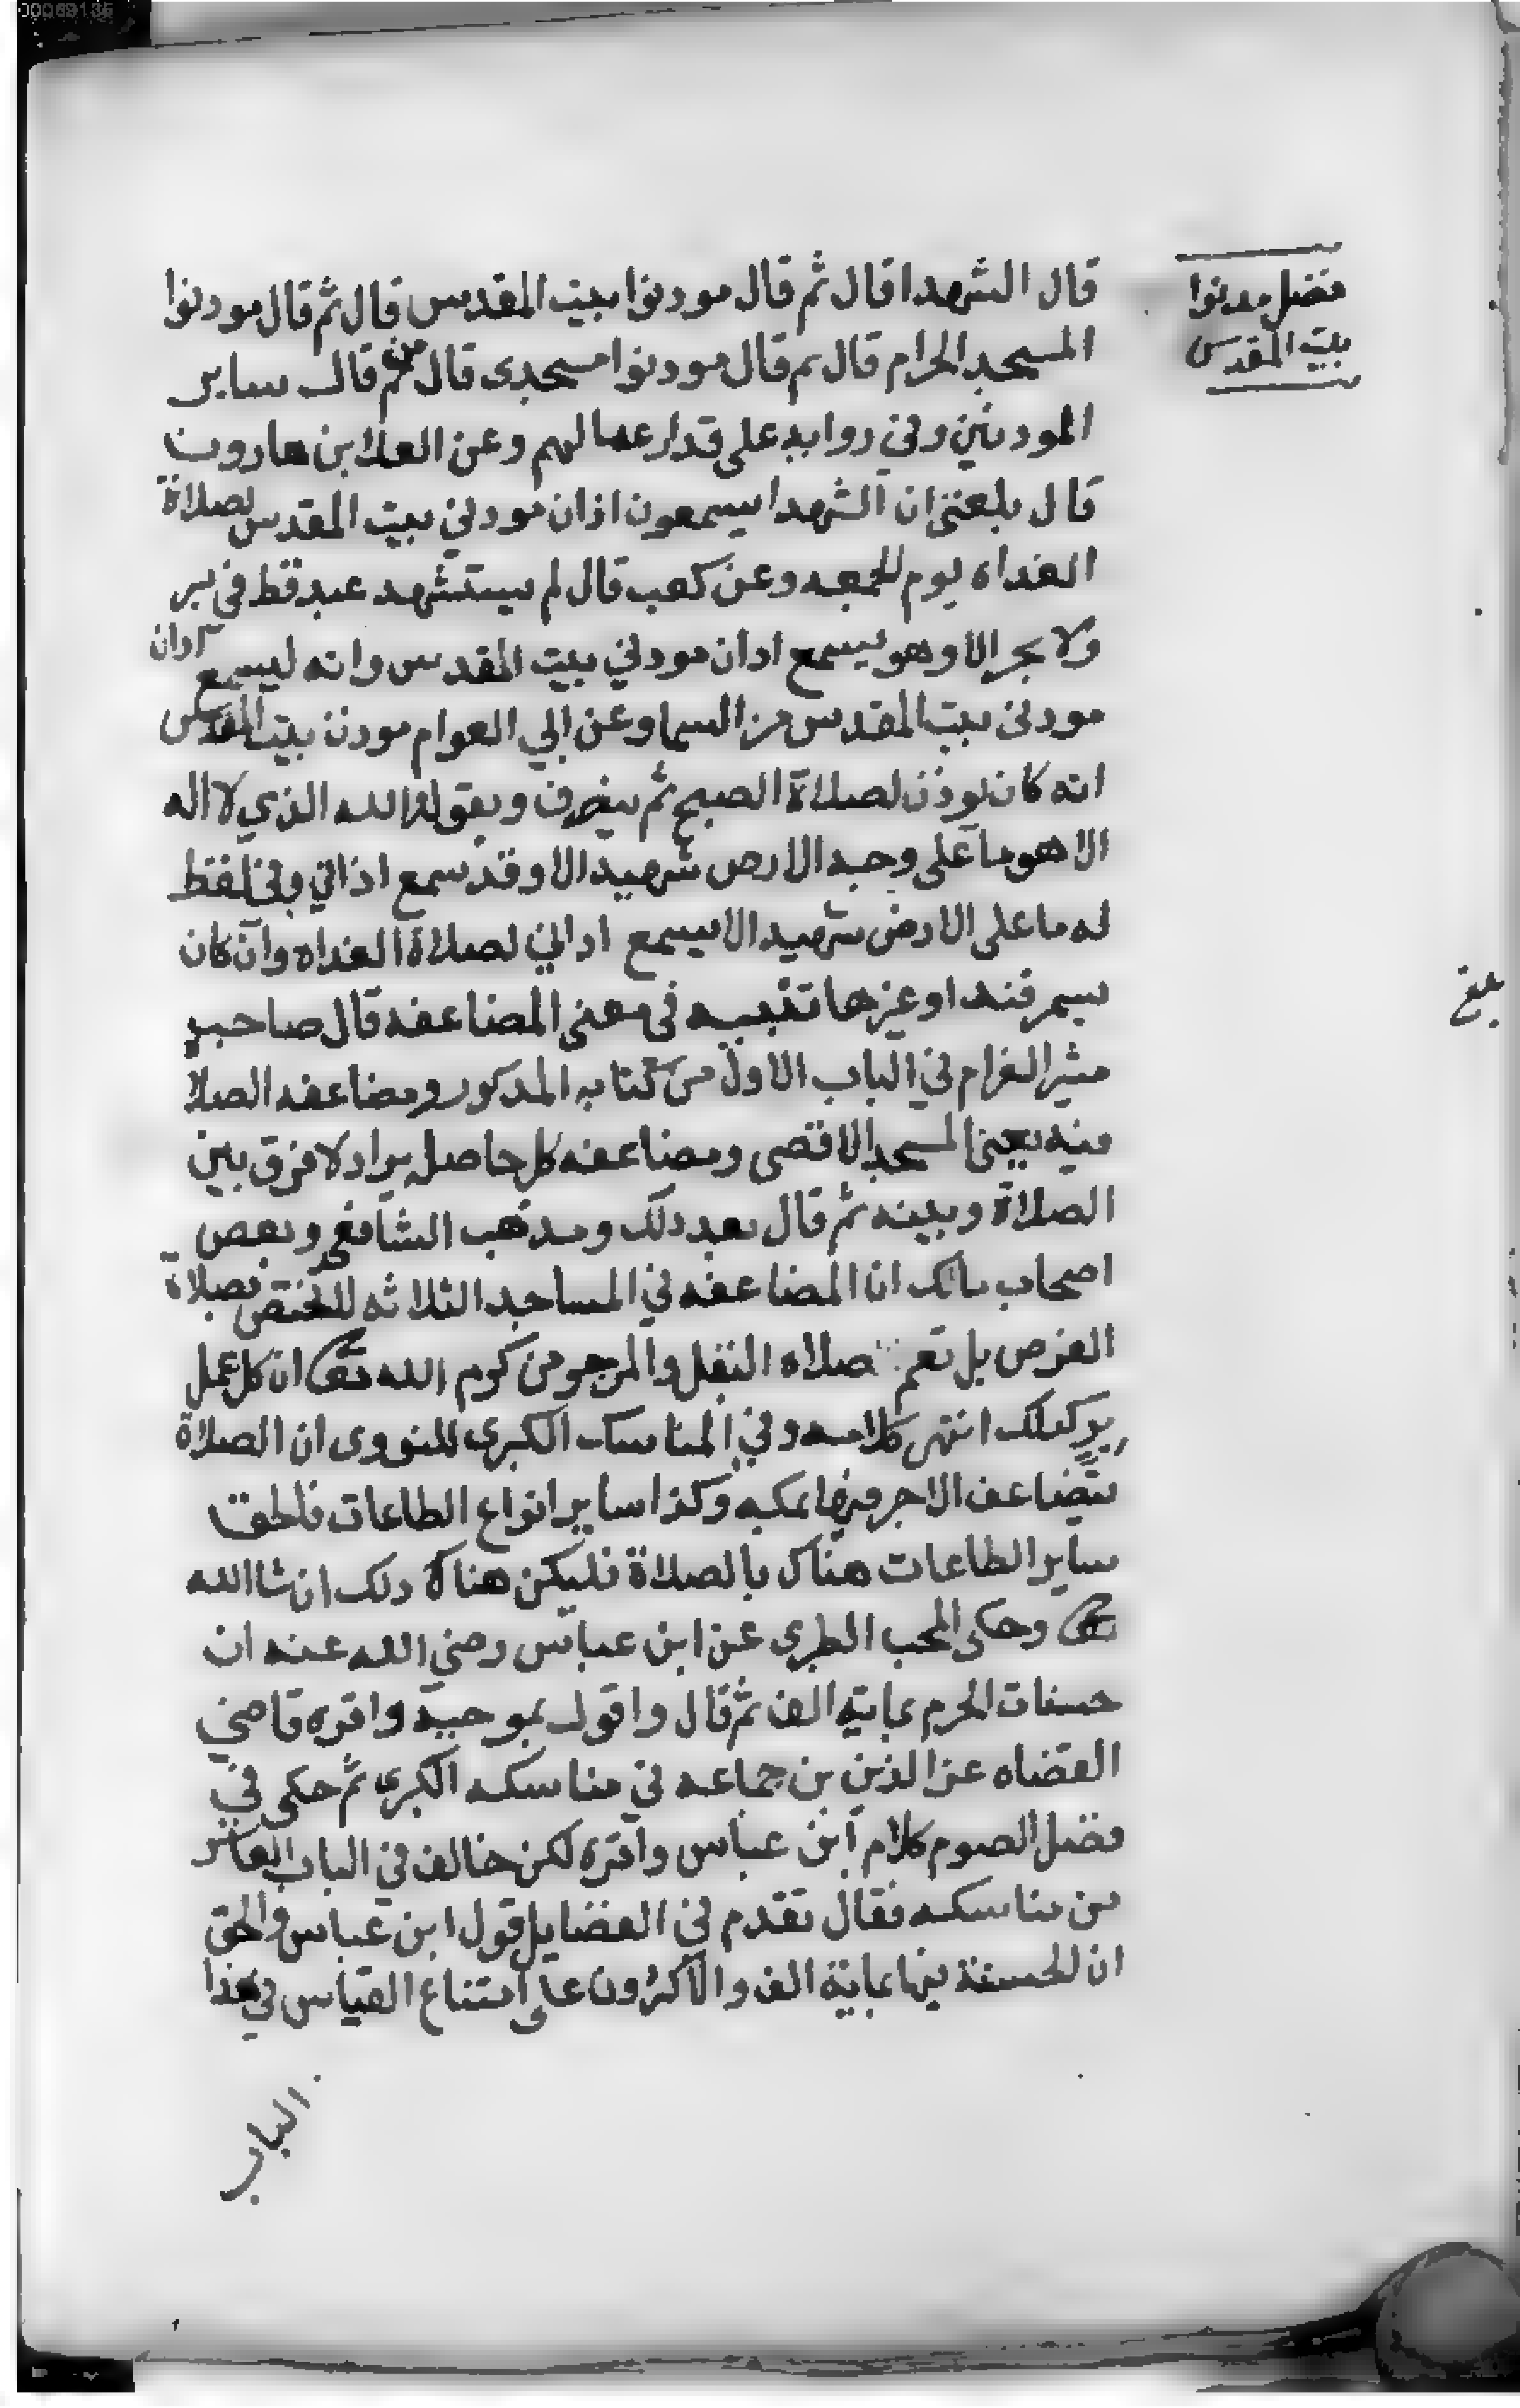 فضل مودنوا
بيت المقدس
قال الشهدا قال ثم قال مودنوا بيت المقدس قال ثم قال مودنوا
المسجد الحرام قال ثم قال مودنوا مسجدى قال ثم من قال ساير
المودنين وفي روايه على قدر اعمالهم وعن العلا بن هارون
قال بلغنى ان الشهدا يسمعون اذان مودني بيت المقدس لصلاة
الغداه يوم الجمعه وعن كعب قال لم يستشهد عبد قط في بر
ولا بحر الا وهو يسمع ادان مودني بيت المقدس وانه ليسمع آدان
مودني بيت المقدس من السما وعن ابي العوام مودن بيت المقدس
انه كان يوذن لصلاة الصبح ثم ينصرف ويقول والله الذي لا اله
الا هو ما على وجه الارض شهيد الا وقد سمع اذاني وفي لفظ
له ما على الارض شهيد الا يسمع اداني لصلاة الغداه وان كان
بسمرقند او غيرها تنبيه في معنى المضاعفه قال صاحب
مثير الغرام في الباب الاول من كتابه المدكور ومضاعفه الصلا
فيه يعنى المسجد الاقصى ومضاعفه كل حاصله يراد لا فرق بين
الصلاة وبينه ثم قال بعد دلك ومدهب الشافعى وبعض
اصحاب مالك ان المضاعفه في المساجد الثلاثه لا تختص بصلاة
الفرض بل تعم صلاه النفل والمرجو من كرم الله تعالى ان كل عمل
بر كدلك انتهى كلامه وفي المناسك الكبرى للنووى ان الصلاة
يتضاعف الاجر فيها بمكه وكذا ساير انواع الطاعات فلحق
ساير الطاعات هناك بالصلاة فليكن هنا كدلك ان شا الله
تعالى وحكى المحب الطبرى عن ابن عباس رضي الله عنه ان
حسنات الحرم بماية الف ثم قال واقول بموجبه واقره قاضي
القضاه عز الدين بن جماعه في مناسكه الكبرى ثم حكى في
فضل الصوم كلام ابن عباس واقره لكن خالف في الباب العاشر
من مناسكه فقال تقدم في الفضايل قول ابن عباس والحق
ان الحسنة فيها بماية الف والاكثرون على امتناع القياس في هذا
الباب
بلغ